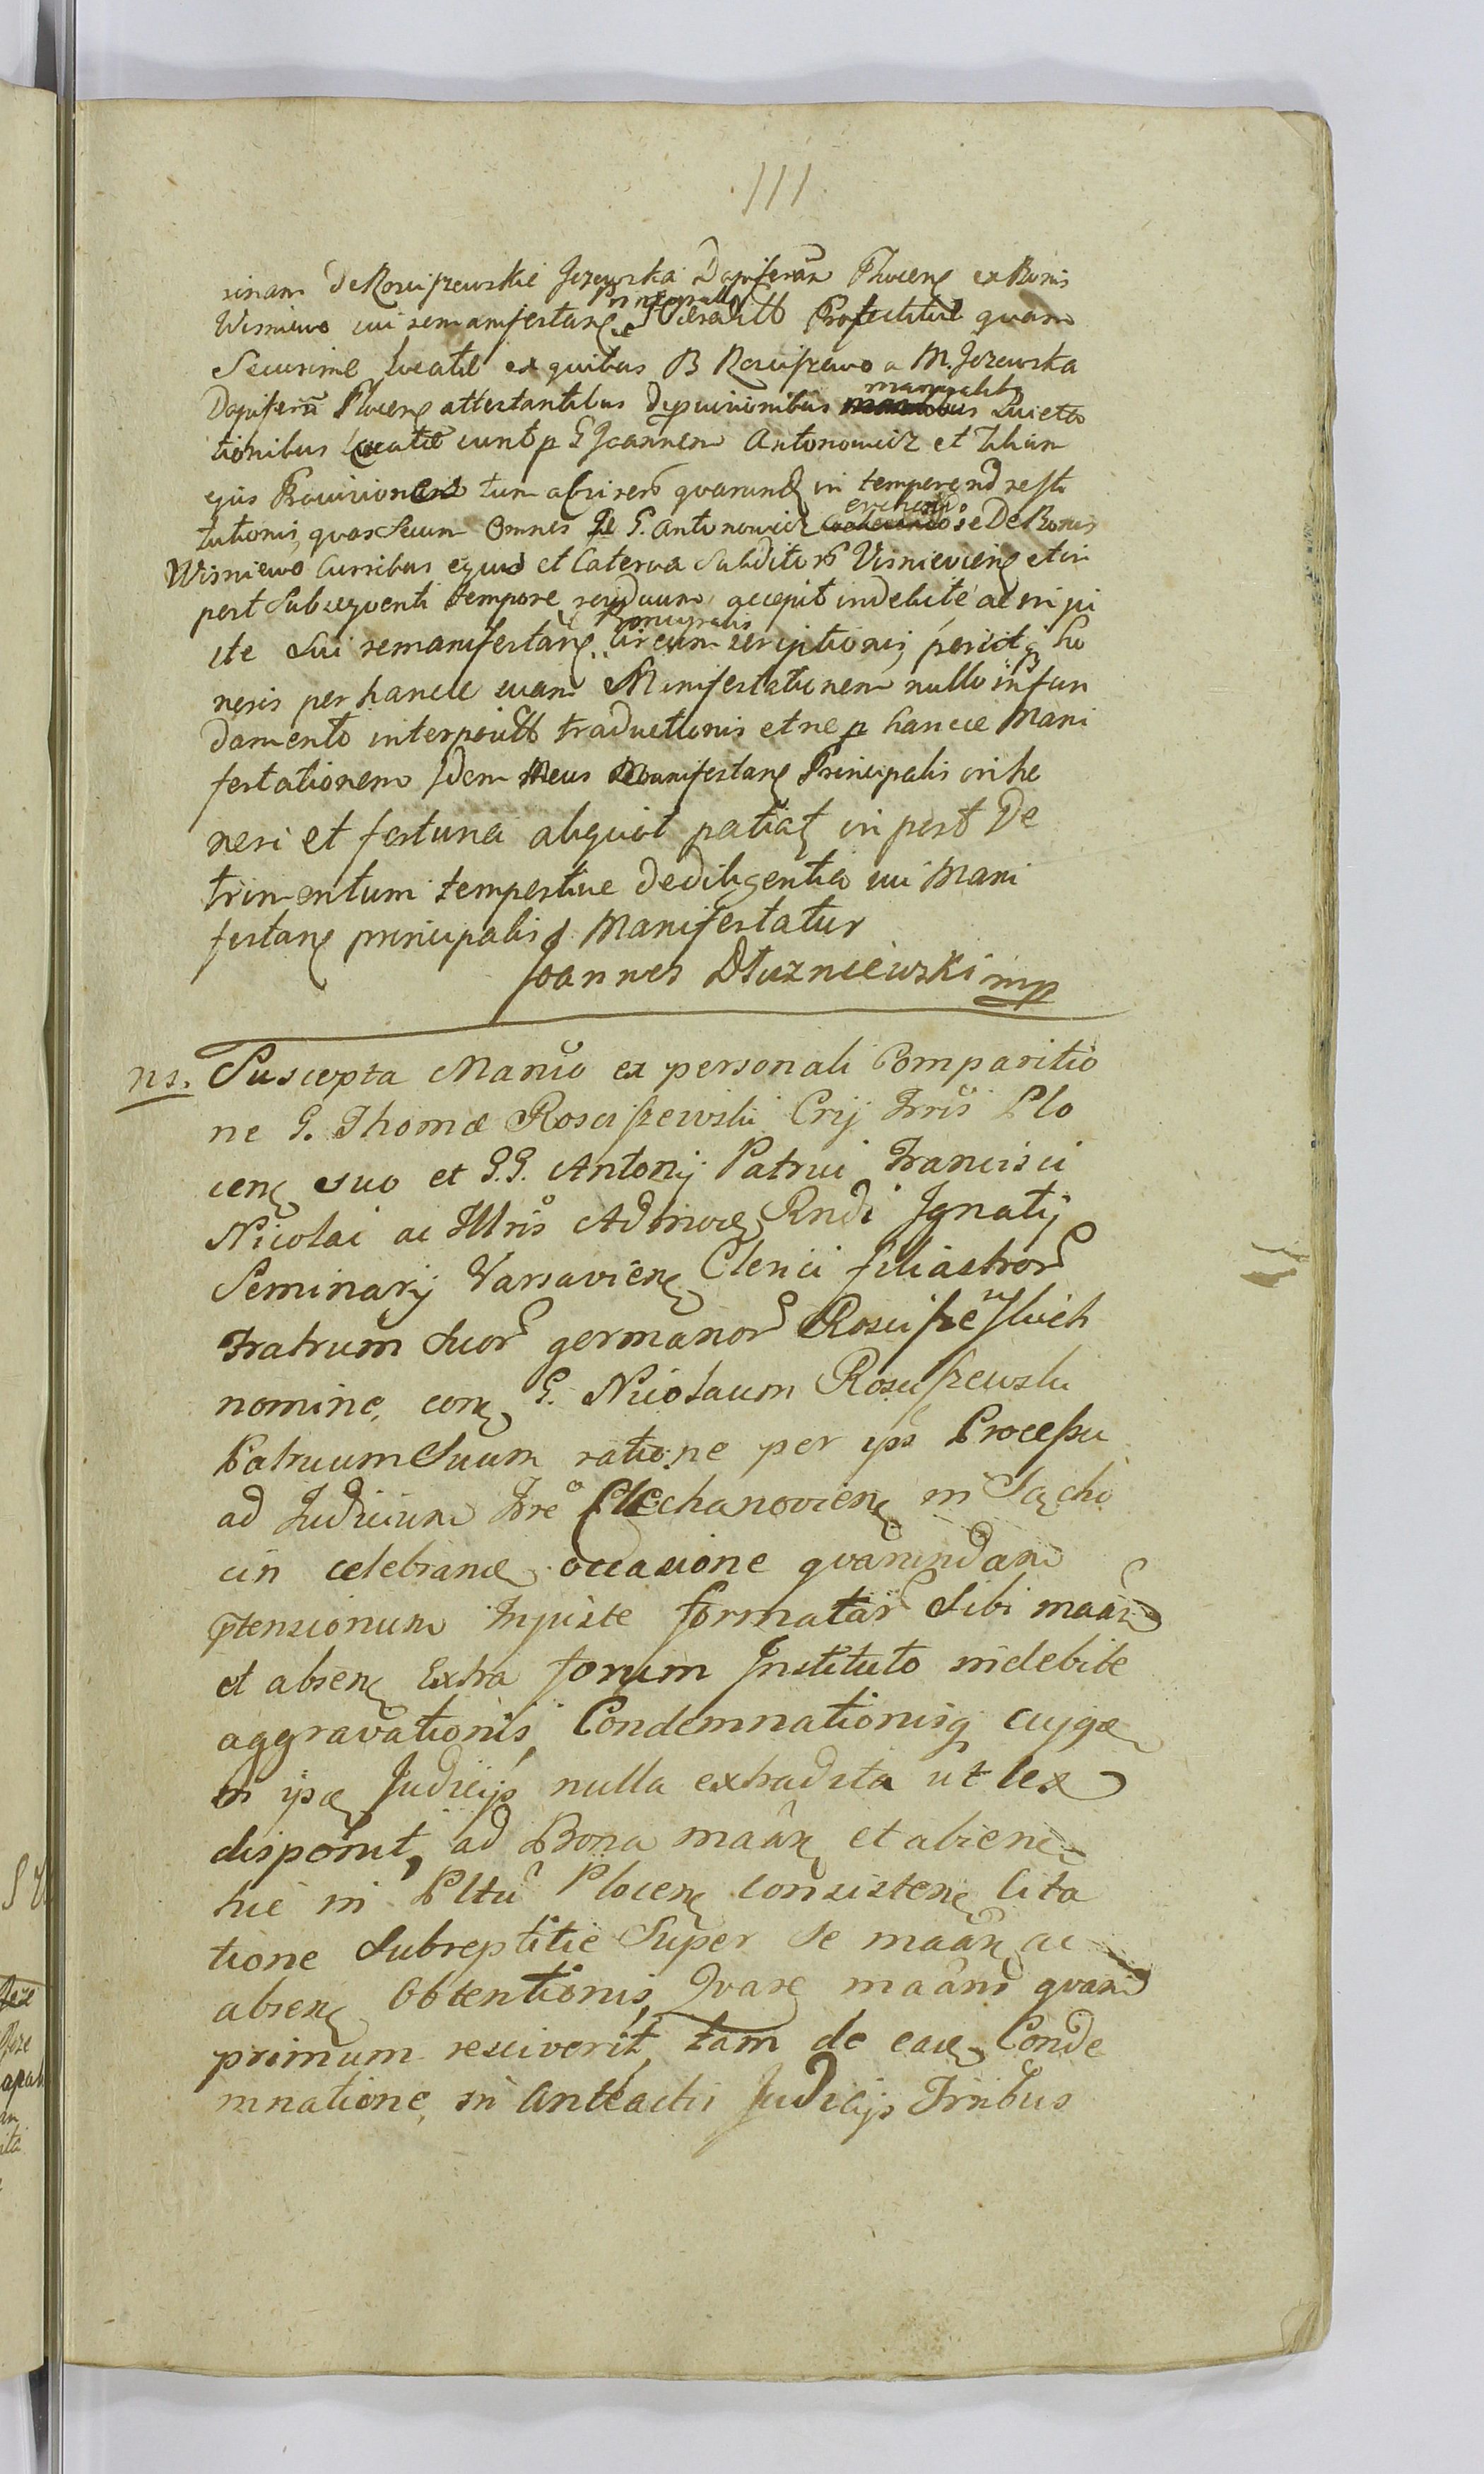 111
rinam De Rosciszewskie Jezewska Dapiferam Plocens ex Bonis
Wisniewo sui remanifestans Principalis
Securime locatae ex quibus B Rosciszewo a M. Jezewska
Dapifera Plocens attestantibus manualibus Quieta
tionibus locatae sunt p G Joannem Antonowicz et
ejus tum quarund in temperend resti
tutionis, quas secum omnes G. Antonowicz evehendo se De Bonis
Wisniewo Curribus equis et Caterva Subditor Visnieviens et in
post subsequenti tempore residuum accepit indebite ac inju
ste sui remanifestans Principalis circumscriptionis, ho
neris per hancce suam Manifestationem nullo in fun
damento interposit traductionis et ne p hancce Mani
festationem Idem Meus Remanifestans Principalis in ho
neri et fortuna aliquot patiat in post De
trimentum tempestive de diligentia sui Mani
festans principalis Manifestatur
Joannes Dłuzniewski mp
ns. Suscepta Manio ex personali Comparitio
ne G. Thomae Rosciszewski Crij Trris Plo
cens suo et G.G. Antonij Patrui Francisci
Nicolai ac Illris Admoce Rndi Ignatij
Seminarij Varsaviens Clerici filiastror
Fratrum Suor germanor Rosciszewskich
nomine, con G. Nicolaum Rosciszewski
Patruum Suum ratione per ips Processu
ad Judicium Tre Ciechanoviens in Sącho
cin celebrand occasione quarundam
ptensionum Injuste formatar Sibi maan
et absen Extra forum Instituto indebite
aggravationis, Condemnationisq cujqae
in ipse Judicijs nulla extradita ut lex
disponit, ad Bona maan et absen
hic in Pltu Plocens consisten Cita
tione Subreptitie Super Se maan ac
absen Obtentionis, Quare maans quam
primum resciverit, tam de eace Conde
mnatione, in Anteactis Judicijs Trribus